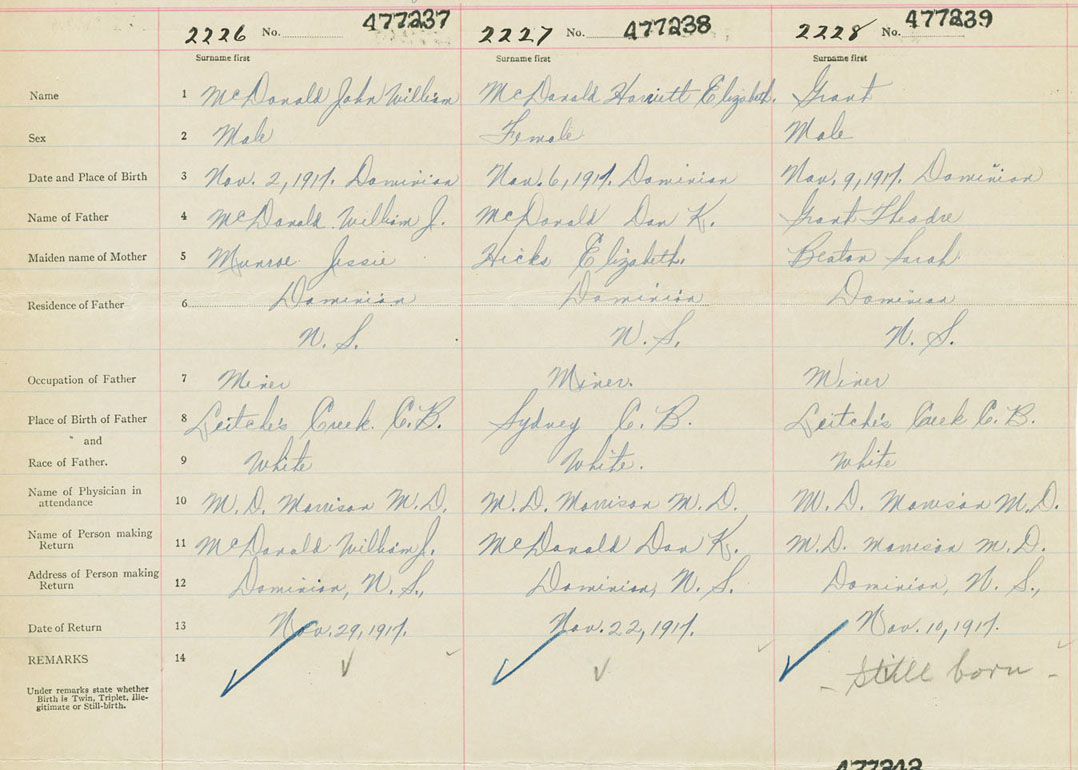 2226 No. 477237 2227 No. 477238 2228 No. 477239
Surname first Surname first Surname first
Name 1 McDonald John William McDonald Harriett Elizabeth. Grant
Sex 2 Male Female Male
Date and Place of Birth 3 Nov. 2, 1917. Dominion Nov. 6, 1917. Dominion Nov. 9, 1917. Dominion
Name of Father 4 McDonald William J. McDonald Dan K. Grant Theodre
Maiden name of Mother 5 Munroe Jessie Hicks Elizabeth. Beaton Sarah
Residence of Father 6 Dominion Dominion Dominion
N. S. N. S. N. S.
Occupation of Father 7 Miner Miner. Miner
Place of Birth of Father 8 Leitche's Creek. C. B. Sydney C. B. Leitche's Creek C. B.
and
Race of Father. 9 White White. White
Name of Physician in
attendance 10 M. D. Morrison M. D. M. D. Morrison M. D. M. D. Morrison M. D.
Name of Person making
Return 11 McDonald William J. McDonald Dan K. M. D. Morrison M. D.
Address of Person making
Return 12 Dominion, N. S., Dominion, N. S. Dominion, N. S.,
Date of Return 13 Nov. 29, 1917. Nov. 22, 1917. Nov. 10, 1917.
REMARKS 14 - Still born -
Under remarks state whether
Birth is Twin, Triplet, Ille-
gitimate or Still-birth.